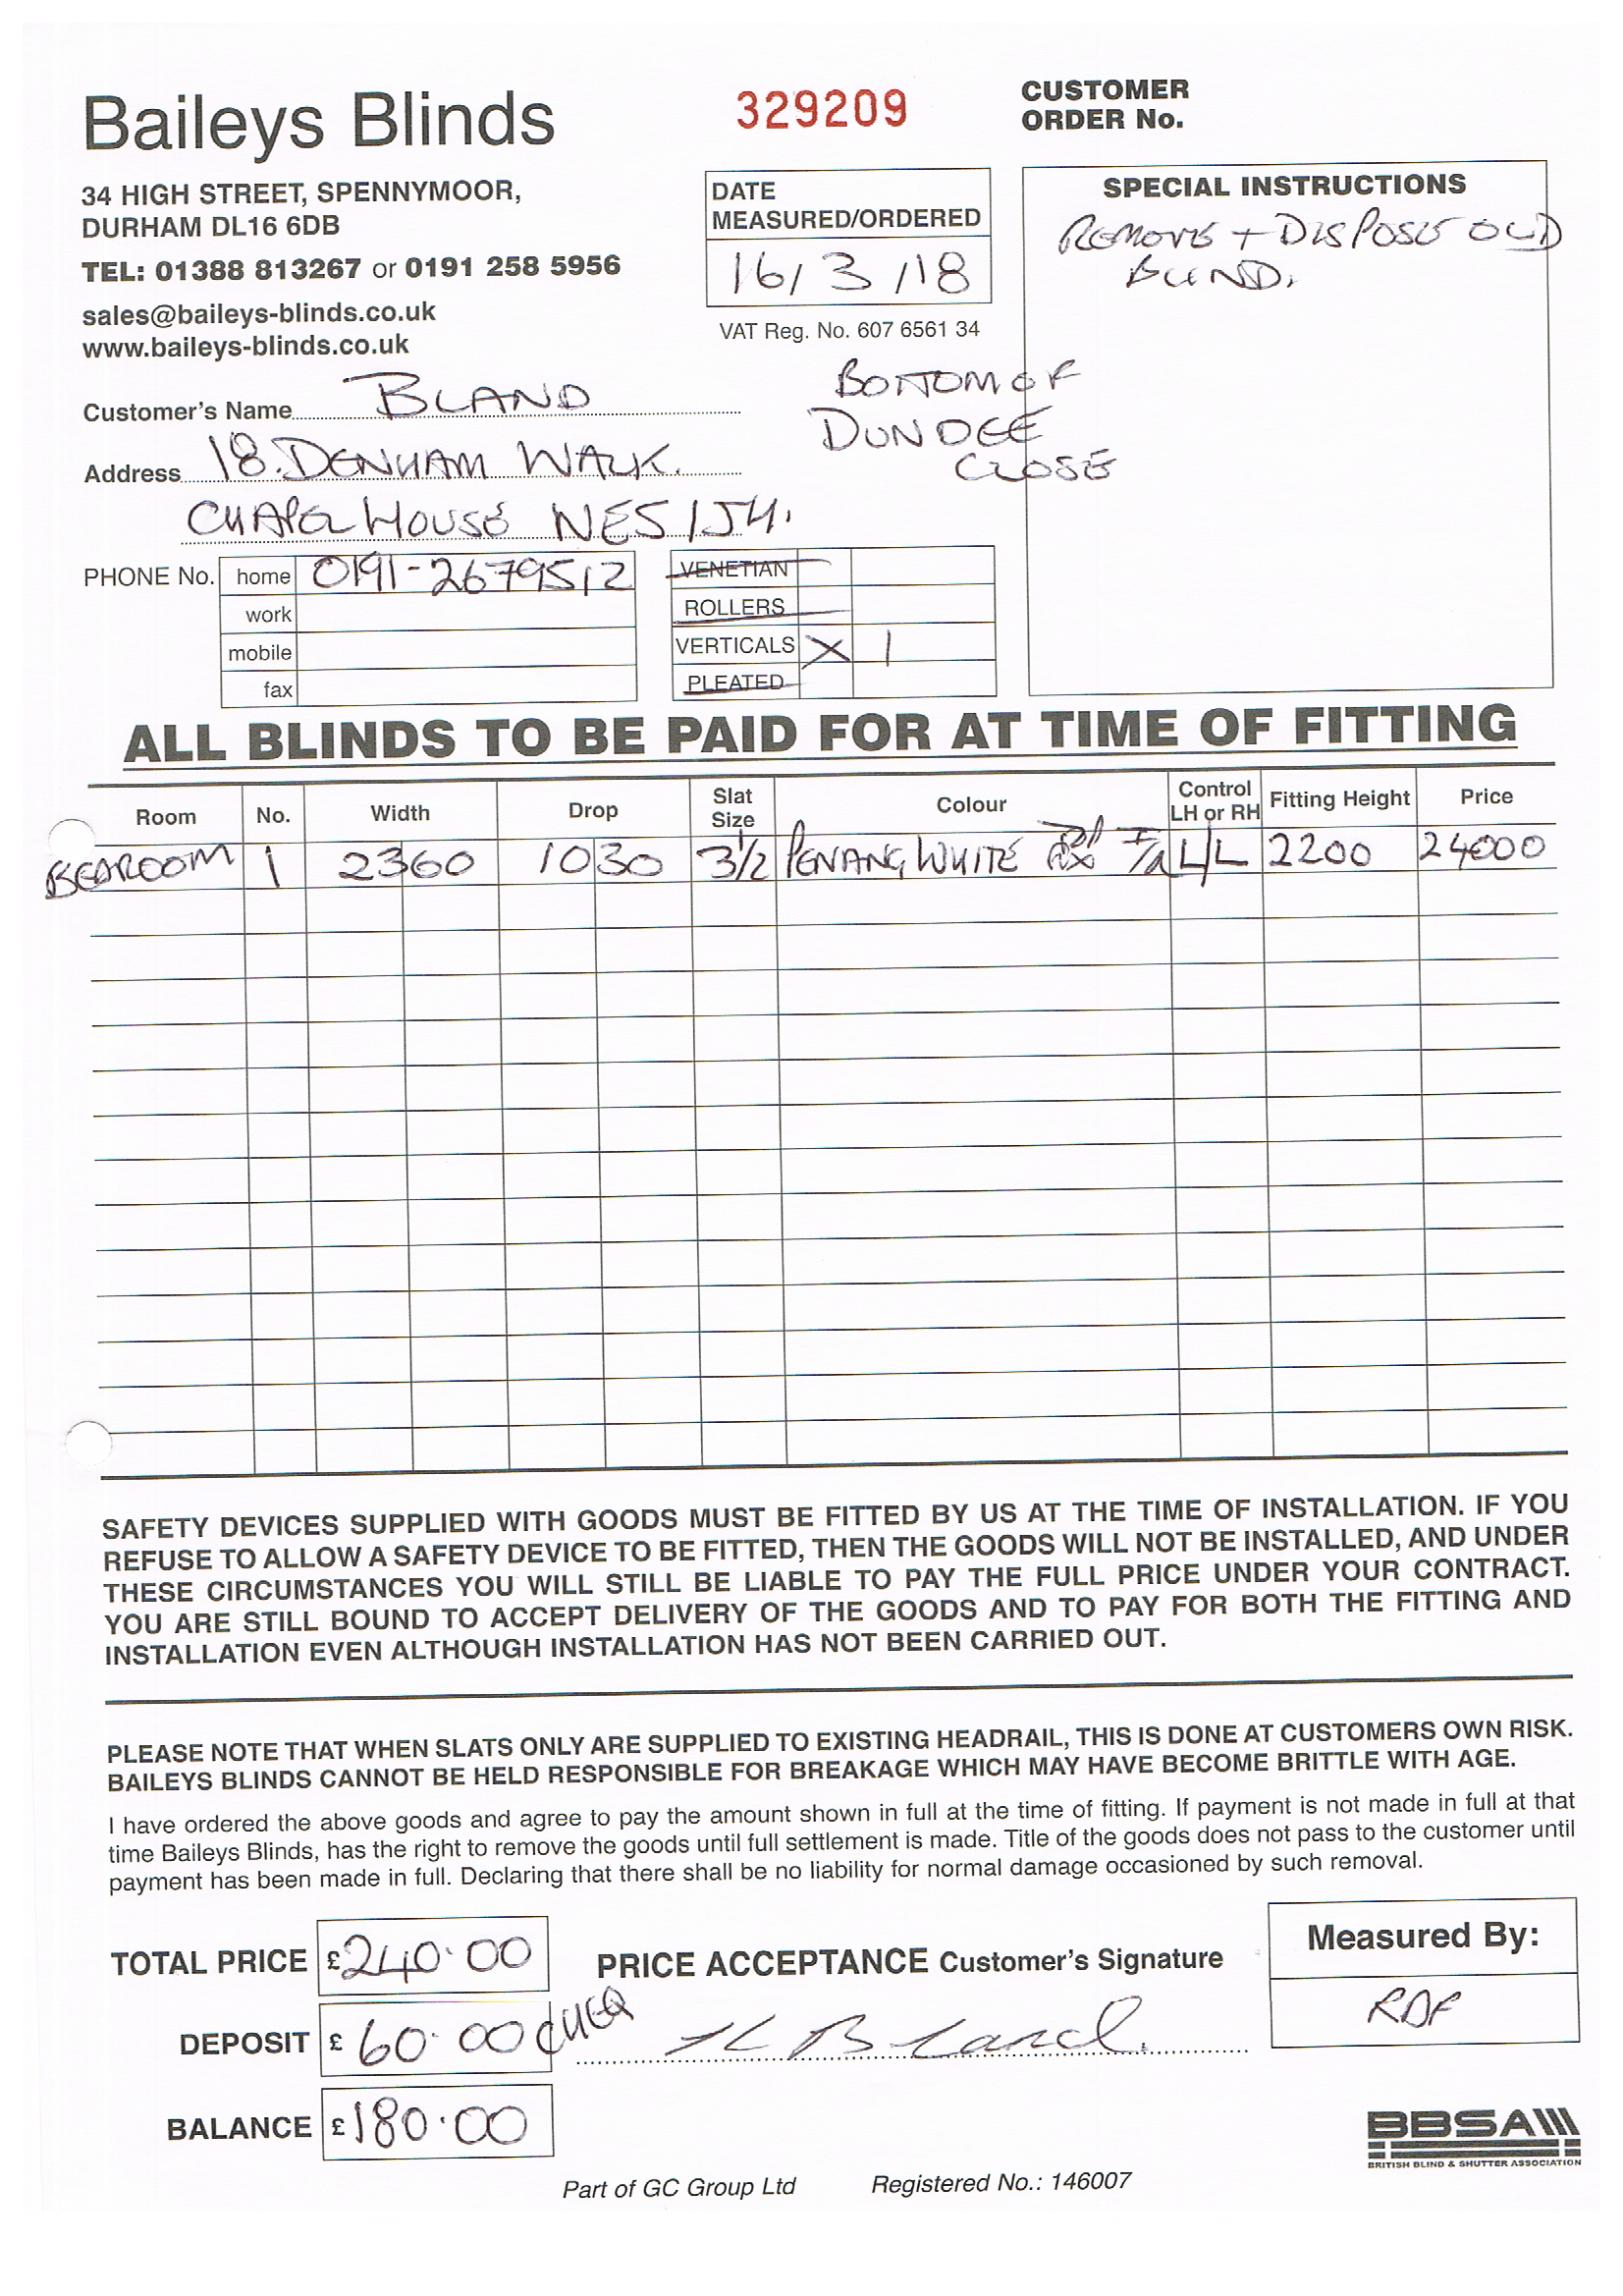 Baileys Blinds
34 HIGH STREET, SPENNYMOOR,
DURHAM DL16 6DB
TEL: 01388 813267 or 0191 258 5956
sales@baileys-blinds.co.uk
www.baileys-blinds.co.uk
329209
DATE
MEASURED/ORDERED
16/3/18
VAT Reg. No. 607 6561 34
CUSTOMER
ORDER No.
SPECIAL INSTRUCTIONS
REMOVE + DISPOSE OLD
BLIND.
Customer's Name BLAND
Address 18. DENHAM WALK.
CHAPEL HOUSE NE5 1JH.
BOTTOM OF
DUNDEE
CLOSE
PHONE No. home 0191-2679512
work
mobile
fax
VENETIAN
ROLLERS
VERTICALS X 1
PLEATED
ALL BLINDS TO BE PAID FOR AT TIME OF FITTING
Room No. Width Drop Slat Size Colour Control LH or RH Fitting Height Price
BEDROOM 1 2360 1030 3½ PENANG WHITE L/L 2200 24000
SAFETY DEVICES SUPPLIED WITH GOODS MUST BE FITTED BY US AT THE TIME OF INSTALLATION. IF YOU
REFUSE TO ALLOW A SAFETY DEVICE TO BE FITTED, THEN THE GOODS WILL NOT BE INSTALLED, AND UNDER
THESE CIRCUMSTANCES YOU WILL STILL BE LIABLE TO PAY THE FULL PRICE UNDER YOUR CONTRACT.
YOU ARE STILL BOUND TO ACCEPT DELIVERY OF THE GOODS AND TO PAY FOR BOTH THE FITTING AND
INSTALLATION EVEN ALTHOUGH INSTALLATION HAS NOT BEEN CARRIED OUT.
PLEASE NOTE THAT WHEN SLATS ONLY ARE SUPPLIED TO EXISTING HEADRAIL, THIS IS DONE AT CUSTOMERS OWN RISK.
BAILEYS BLINDS CANNOT BE HELD RESPONSIBLE FOR BREAKAGE WHICH MAY HAVE BECOME BRITTLE WITH AGE.
I have ordered the above goods and agree to pay the amount shown in full at the time of fitting. If payment is not made in full at that
time Baileys Blinds, has the right to remove the goods until full settlement is made. Title of the goods does not pass to the customer until
payment has been made in full. Declaring that there shall be no liability for normal damage occasioned by such removal.
TOTAL PRICE £240.00
DEPOSIT £60.00 CHEQ
BALANCE £180.00
PRICE ACCEPTANCE Customer's Signature
Bland.
Measured By:
RDF
BBSA
BRITISH BLIND & SHUTTER ASSOCIATION
Part of GC Group Ltd Registered No.: 146007